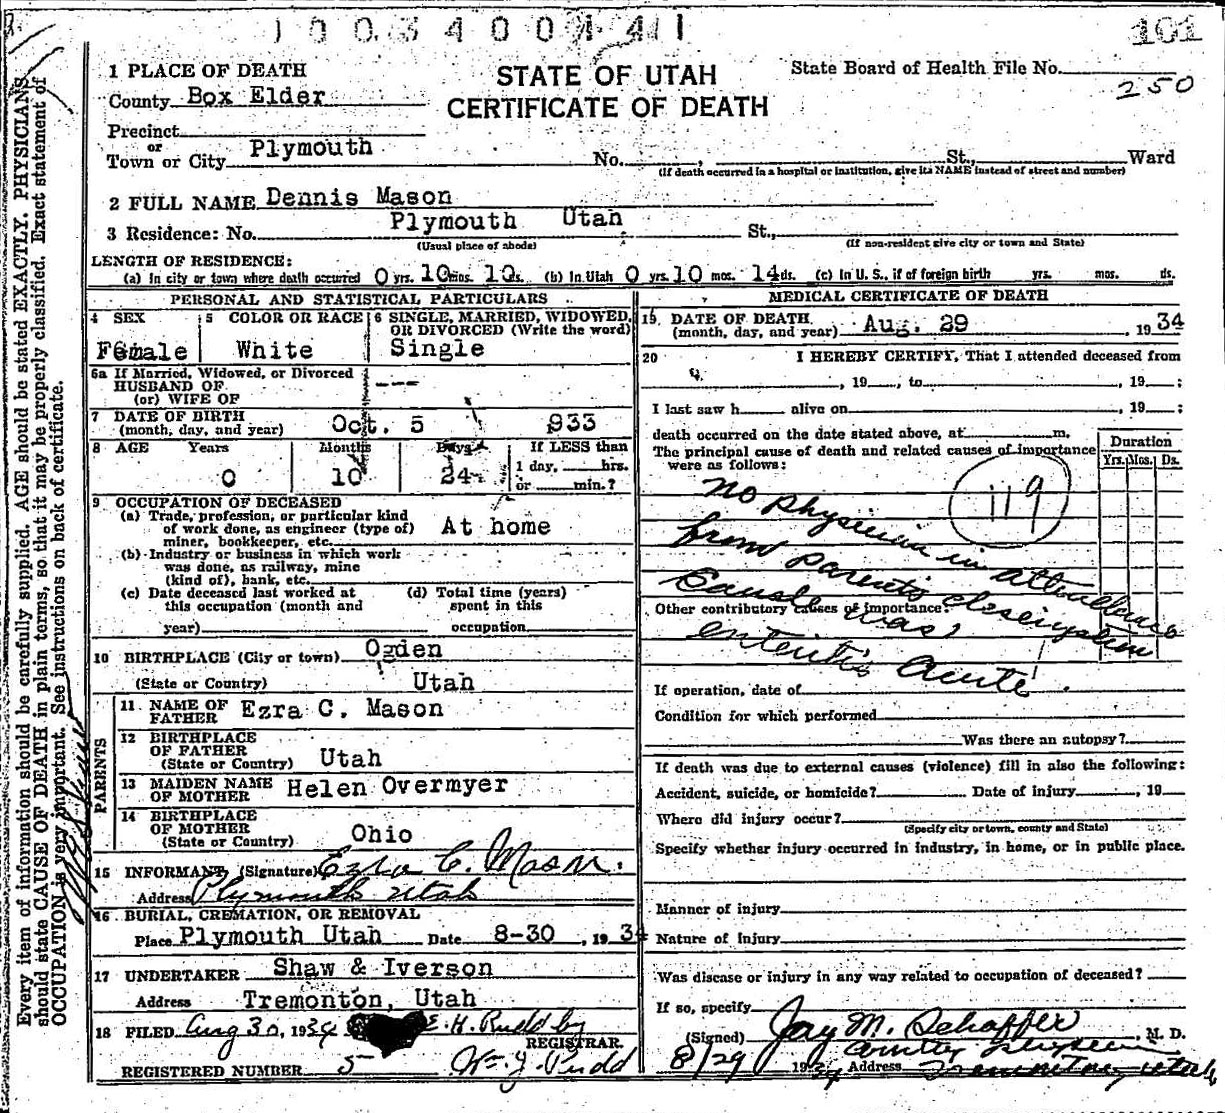 1 0 0 3 4 0 0 4 4 1
101
1 PLACE OF DEATH
STATE OF UTAH
CERTIFICATE OF DEATH
State Board of Health File No.
250
County Box Elder
Precinct
or
Town or City Plymouth No. , St., Ward
(If death occurred in a hospital or institution, give its NAME instead of street and number)
2 FULL NAME Dennis Mason
3 Residence: No. Plymouth Utah St.,
(Usual place of abode) (If non-resident give city or town and State)
LENGTH OF RESIDENCE:
(a) In city or town where death occurred 0 yrs. 10 mos. 10 ds. (b) In Utah 0 yrs. 10 mos. 14 ds. (c) In U. S., if of foreign birth yrs. mos. ds.
PERSONAL AND STATISTICAL PARTICULARS
4 SEX
Female
5 COLOR OR RACE
White
6 SINGLE, MARRIED, WIDOWED, OR DIVORCED (Write the word)
Single
6a If Married, Widowed, or Divorced
HUSBAND OF
(or) WIFE OF ---
7 DATE OF BIRTH
(month, day, and year) Oct. 5 933
8 AGE Years Months Days If LESS than
1 day, hrs.
0 10 24 or min.?
9 OCCUPATION OF DECEASED
(a) Trade, profession, or particular kind
of work done, as engineer (type of)
miner, bookkeeper, etc. At home
(b) Industry or business in which work
was done, as railway, mine
(kind of), bank, etc.
(c) Date deceased last worked at
this occupation (month and
year)
(d) Total time (years)
spent in this
occupation
10 BIRTHPLACE (City or town) Ogden
(State or Country) Utah
PARENTS
11 NAME OF
FATHER Ezra C. Mason
12 BIRTHPLACE
OF FATHER
(State or Country) Utah
13 MAIDEN NAME
OF MOTHER Helen Overmyer
14 BIRTHPLACE
OF MOTHER
(State or Country) Ohio
15 INFORMANT (Signature) Ezra C. Mason
Address Plymouth Utah
16 BURIAL, CREMATION, OR REMOVAL
Place Plymouth Utah Date 8-30 , 1934
17 UNDERTAKER Shaw & Iverson
Address Tremonton, Utah
18 FILED Aug 30, 1934 E. H. Rudd by
REGISTRAR.
REGISTERED NUMBER 5 Wm. J. Rudd
MEDICAL CERTIFICATE OF DEATH
19 DATE OF DEATH
(month, day, and year) Aug. 29 , 1934
20 I HEREBY CERTIFY, That I attended deceased from
, 19 , to , 19 ;
I last saw h alive on , 19 ;
death occurred on the date stated above, at m.
The principal cause of death and related causes of importance
were as follows:
Duration
Yrs. Mos. Ds.
119
no physician in attendance
from parents description
cause was
Other contributory causes of importance:
enteritis acute.
If operation, date of
Condition for which performed
Was there an autopsy?
If death was due to external causes (violence) fill in also the following:
Accident, suicide, or homicide? Date of injury , 19
Where did injury occur?
(Specify city or town, county and State)
Specify whether injury occurred in industry, in home, or in public place.
Manner of injury
Nature of Injury
Was disease or injury in any way related to occupation of deceased?
If so, specify
(Signed) Jay M. Schaffer , M. D.
County Physician
8/29 1934 Address Tremonton, Utah
Every item of information should be carefully supplied. AGE should be stated EXACTLY. PHYSICIANS
should state CAUSE OF DEATH in plain terms, so that it may be properly classified. Exact statement of
OCCUPATION is very important. See instructions on back of certificate.